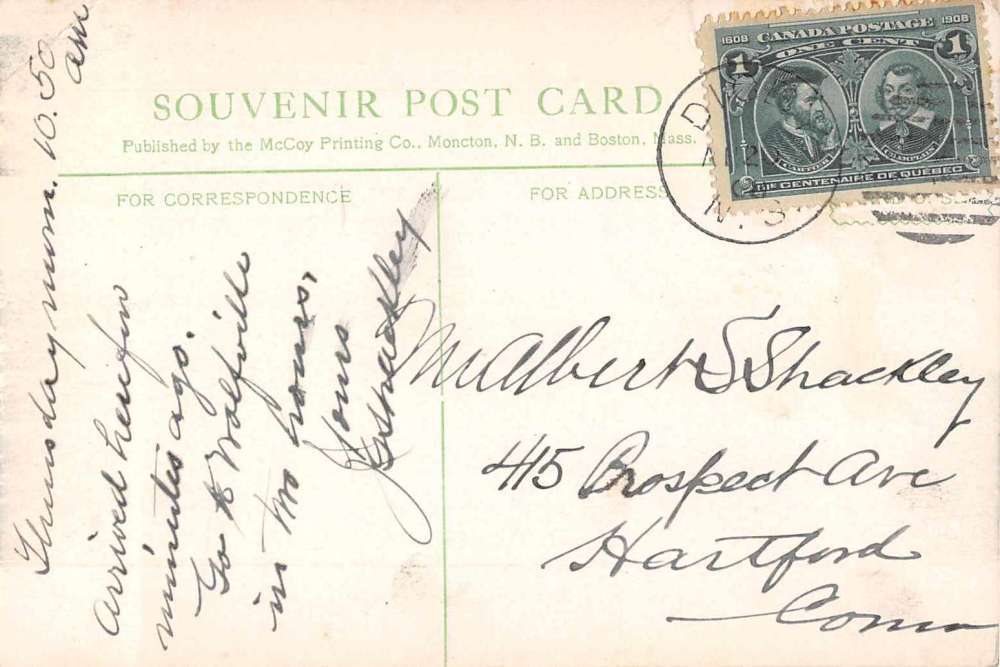 1608 CANADA POSTAGE 1908
ONE CENT
1 1
CARTIER CHAMPLAIN
½ ½
IIIE CENTENAIRE DE QUEBEC
DIGBY
N.S.
SOUVENIR POST CARD
Published by the McCoy Printing Co., Moncton, N. B. and Boston, Mass.
FOR CORRESPONDENCE
FOR ADDRESS
Thursday morn. 10.50 am
arrived here few
minutes ago.
Go to Wolfville
in two hours,
Yours
Shackley
Mr Albert S Shackley
415 Prospect Ave
Hartford
Conn